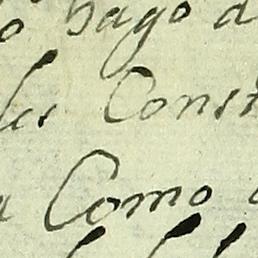 o hago d
les Const
a Como